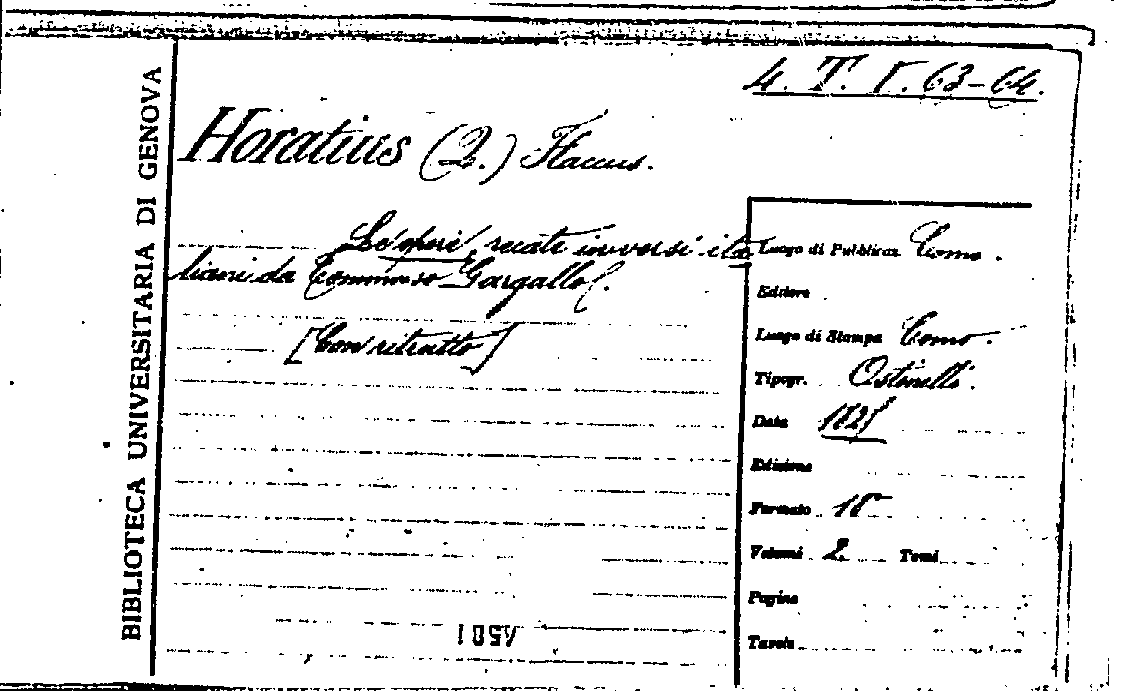 4. T. Γ. 63-64.
BIBLIOTECA UNIVERSITARIA DI GENOVA
Horatius (Q.) Flaccus.
Le opere, recate in versi ita
liani da Tommaso Gargallo.
[Con ritratto]
Luogo di Pubblicaz. Como.
Editore
Luogo di Stampa Como.
Tipogr. Ostinelli.
Data
Edizione
Formato
Volumi 2. Tomi
Pagine
Tavole